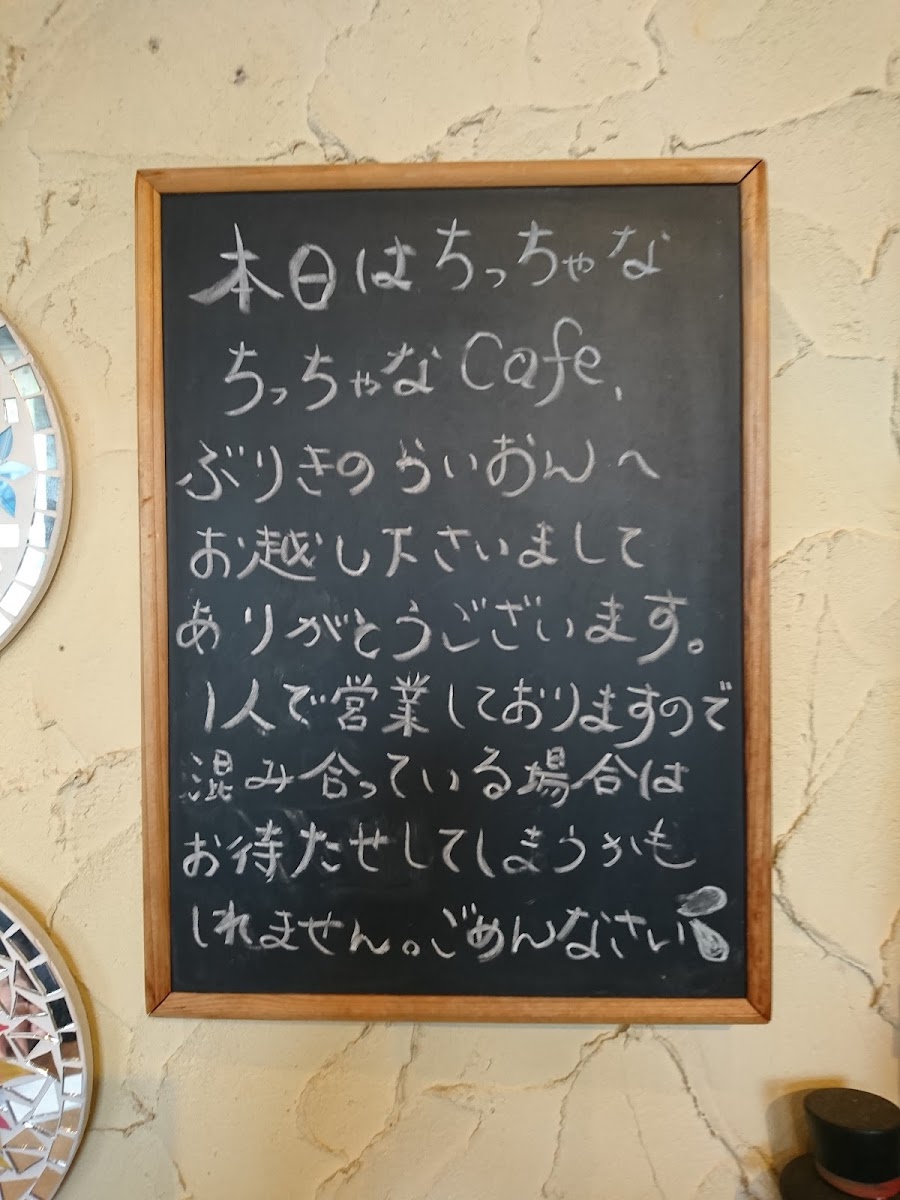 本日はちっちゃな
ちっちゃなCafe、
ぶりきのらいおんへ
お越し下さいまして
ありがとうございます。
1人で営業しておりますので
混み合っている場合は
お待たせしてしまうかも
しれません。ごめんなさい